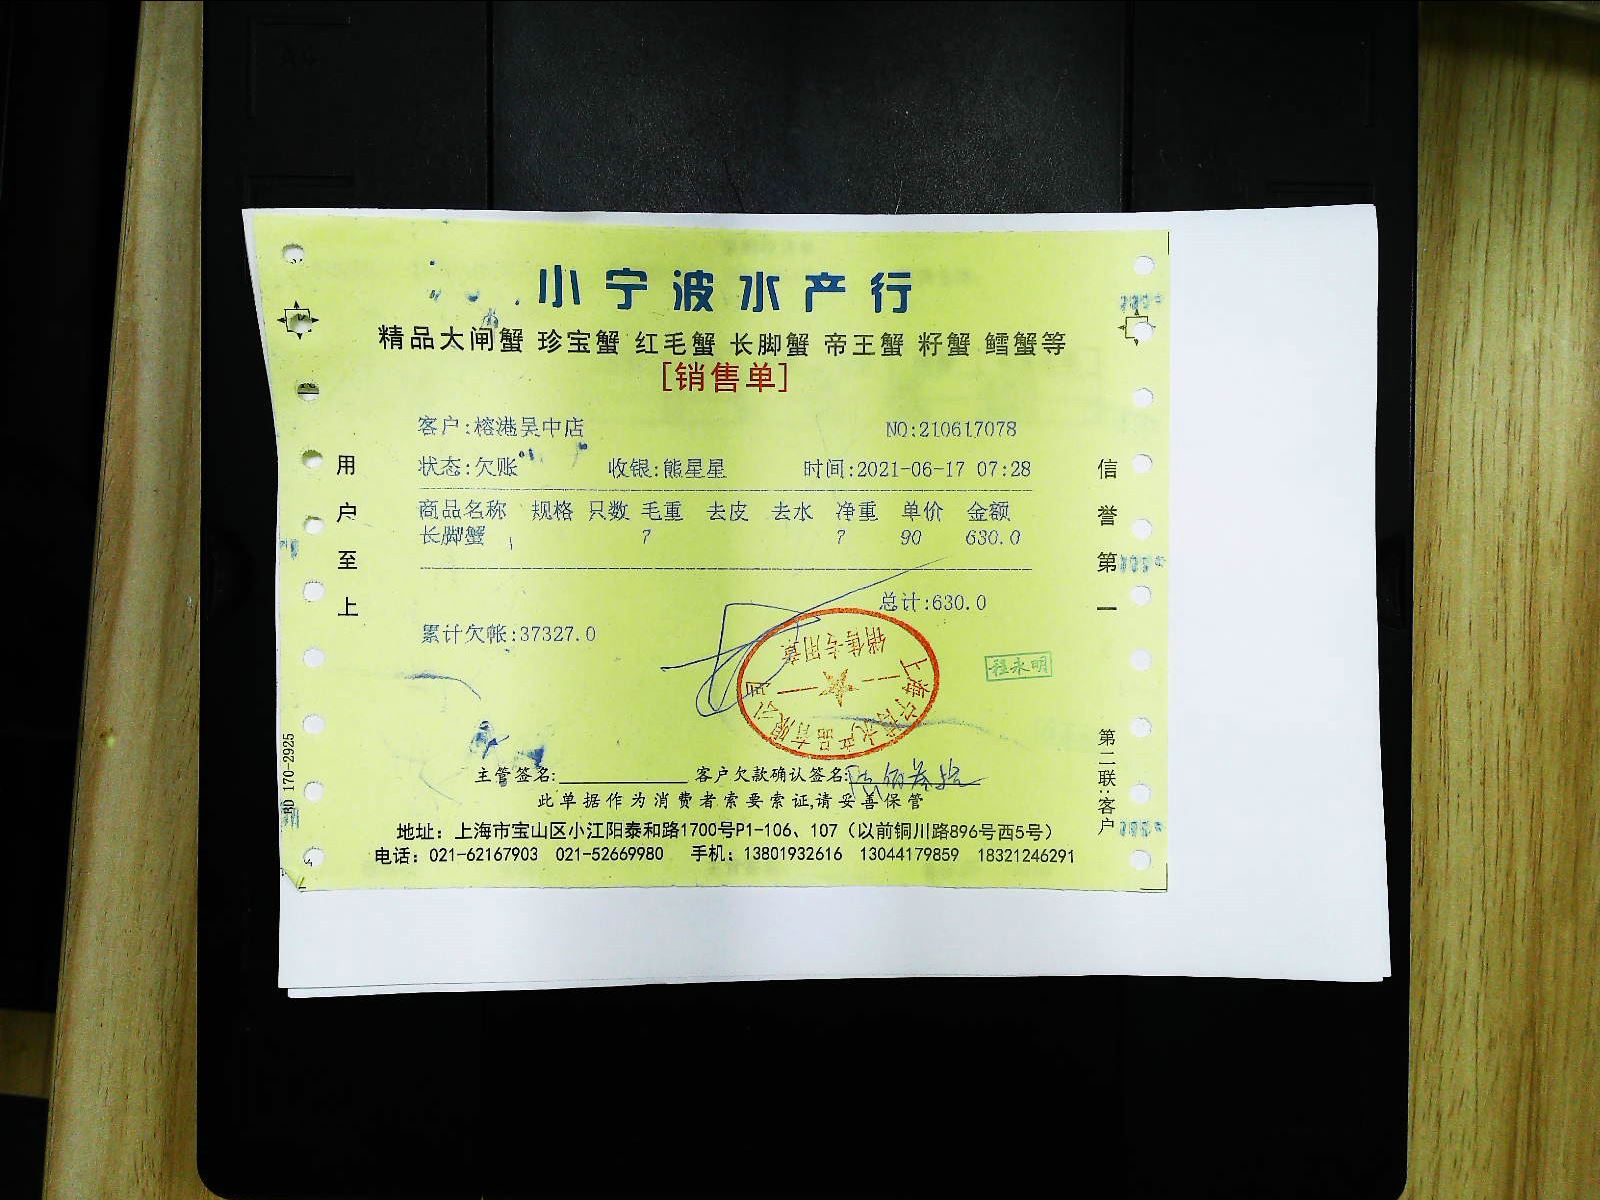 小宁波水产行
精品大闸蟹 珍宝蟹 红毛蟹 长脚蟹 帝王蟹 籽蟹 鳕蟹等
[销售单]
客户:榕港吴中店 NO:210617078
状态:欠账 收银:熊星星 时间:2021-06-17 07:28
商品名称 规格 只数 毛重 去皮 去水 净重 单价 金额
长脚蟹 7 7 90 630.0
总计:630.0
累计欠帐:37327.0
用户至上
信誉第一
销售专用章
程永明
第二联:客户
170-2925
主管签名: 客户欠款确认签名:
此单据作为消费者索要索证,请妥善保管
地址：上海市宝山区小江阳泰和路1700号P1-106、107（以前铜川路896号西5号）
电话：021-62167903 021-52669980 手机：13801932616 13044179859 18321246291